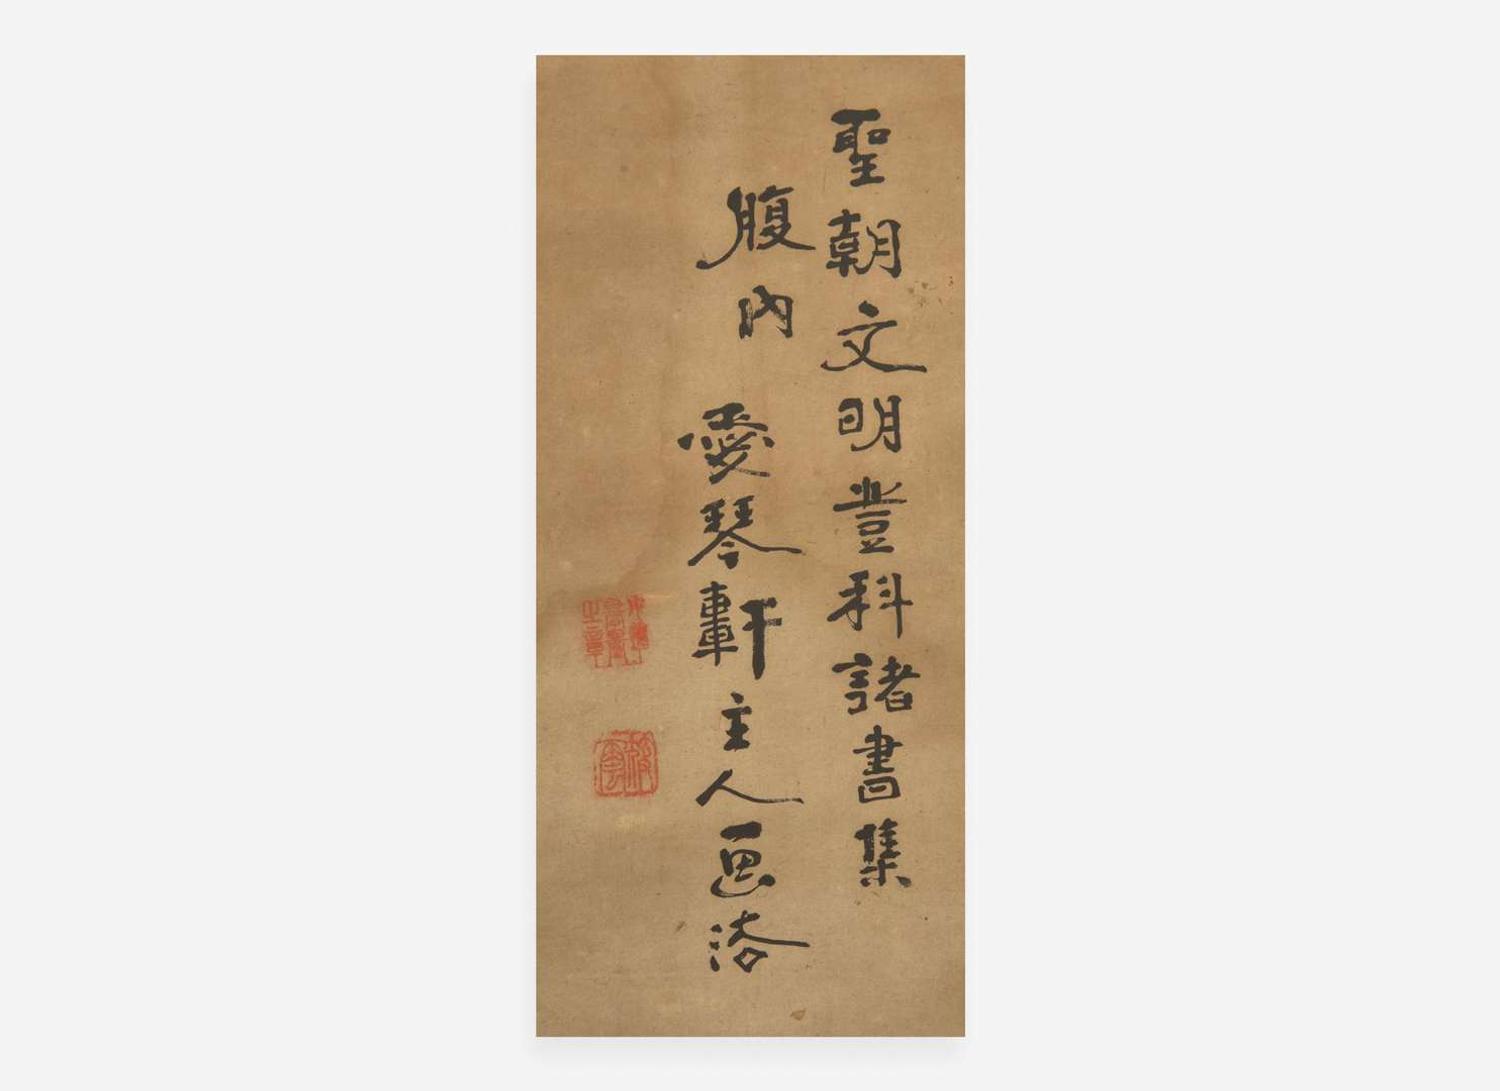 聖朝文明豊科諸書集
腹内 愛琴軒主人画